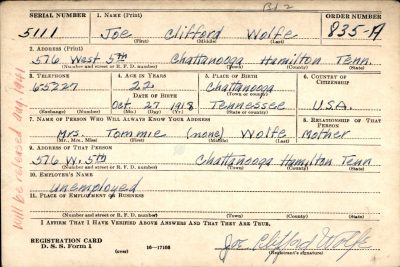 Bd 2
SERIAL NUMBER 1. NAME (Print) ORDER NUMBER
5111 Joe Clifford Wolfe 835-A
(First) (Middle) (Last)
2. ADDRESS (Print)
576 West 5th Chattanooga Hamilton Tenn.
(Number and street or R. F. D. number) (Town) (County) (State)
3. TELEPHONE 4. AGE IN YEARS 5. PLACE OF BIRTH 6. COUNTRY OF CITIZENSHIP
65227 22 Chattanooga
DATE OF BIRTH (Town or county)
Oct. 27 1918 Tennessee U.S.A.
(Exchange) (Number) (Mo.) (Day) (Yr.) (State or country)
7. NAME OF PERSON WHO WILL ALWAYS KNOW YOUR ADDRESS 8. RELATIONSHIP OF THAT PERSON
Mrs. Tommie (none) Wolfe Mother
(Mr., Mrs., Miss) (First) (Middle) (Last)
9. ADDRESS OF THAT PERSON
576 W. 5th Chattanooga Hamilton Tenn
(Number and street or R. F. D. number) (Town) (County) (State)
10. EMPLOYER'S NAME
unemployed
11. PLACE OF EMPLOYMENT OR BUSINESS
(Number and street or R. F. D. number) (Town) (County) (State)
I AFFIRM THAT I HAVE VERIFIED ABOVE ANSWERS AND THAT THEY ARE TRUE.
REGISTRATION CARD
D. S. S. Form 1 (over) 16-17105 Joe Clifford Wolfe
(Registrant's signature)
will be released Aug. 1941